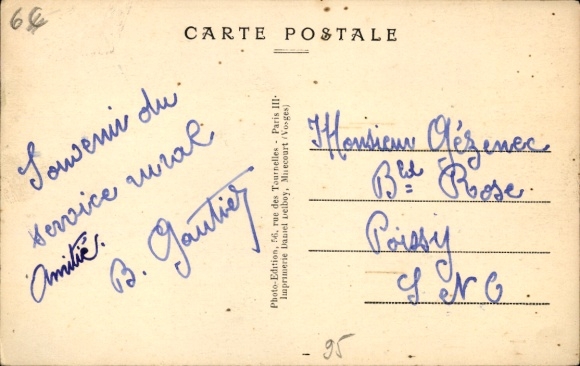 6€
CARTE POSTALE
Souvenir du
service rural
Amitié.
B. Gautier
Photo-Edition, 56, rue des Tournelles - Paris III
Imprimerie Daniel Delboy, Mirecourt (Vosges)
Monsieur Gézenec
Bld Rose
Poissy
S N O
95